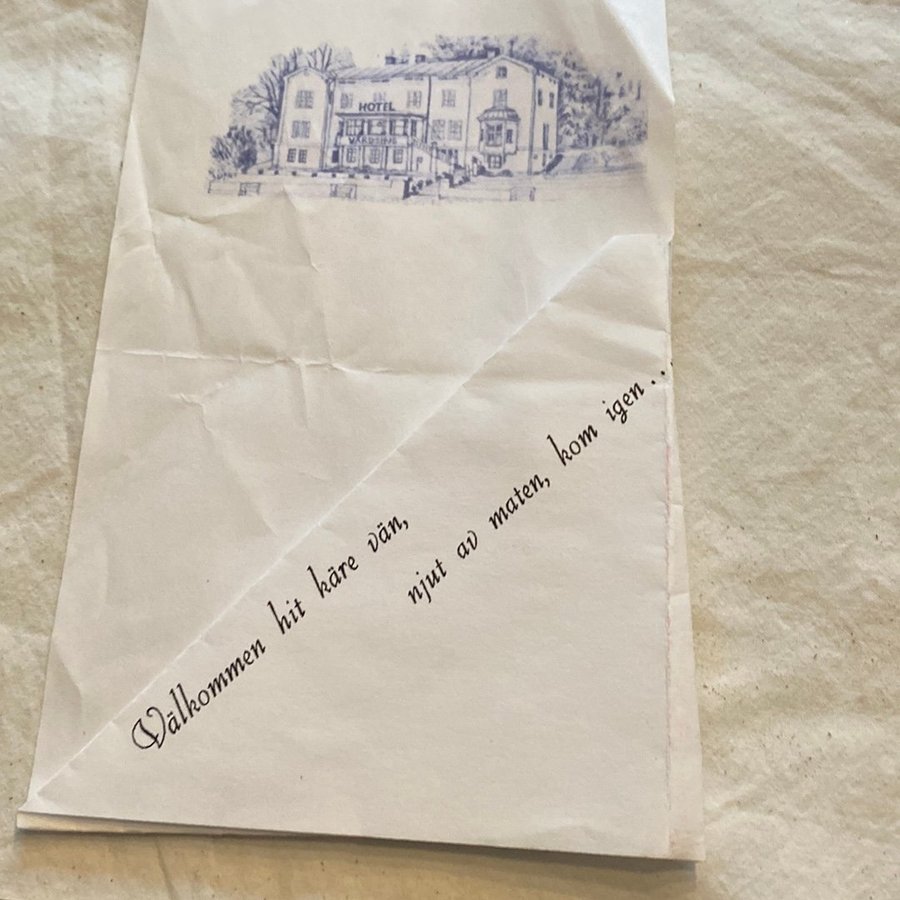 HOTEL
WÄRDSHUS
Välkommen hit käre vän,
njut av maten, kom igen . .